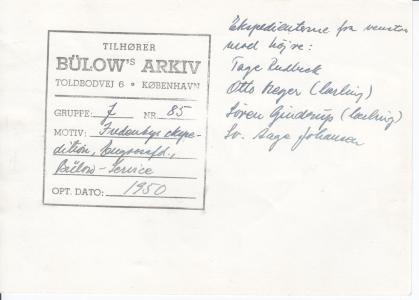 TILHØRER
BÜLOW's ARKIV
TOLDBODVEJ 6 • KØBENHAVN
GRUPPE: J NR. 85
MOTIV: Fredensbys ekspe-
dition, 
Bülow-Service
OPT. DATO: 1950
Ekspedienterne fra venstre
mod højre:
Tage Rudbeck
Otto Meyer (lærling)
Søren Ginderup (lærling)
Sv. Aage Johansen